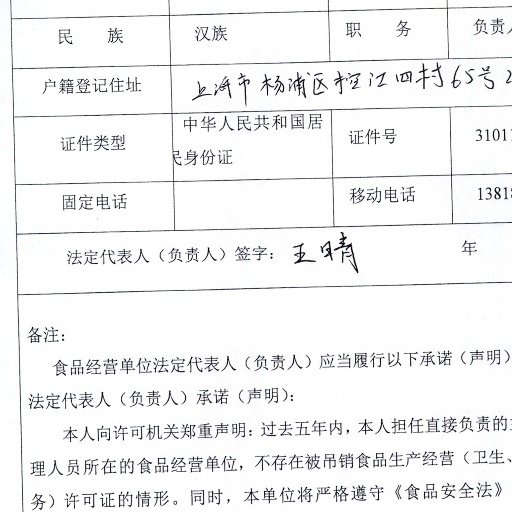 民 族 汉族 职 务 负责人
户籍登记住址 上海市杨浦区控江四村65号2
证件类型 中华人民共和国居 证件号 3101
民身份证
固定电话 移动电话 1381
法定代表人（负责人）签字：王晴 年
备注：
食品经营单位法定代表人（负责人）应当履行以下承诺（声明）
法定代表人（负责人）承诺（声明）：
本人向许可机关郑重声明：过去五年内，本人担任直接负责的主
理人员所在的食品经营单位，不存在被吊销食品生产经营（卫生、
务）许可证的情形。同时，本单位将严格遵守《食品安全法》